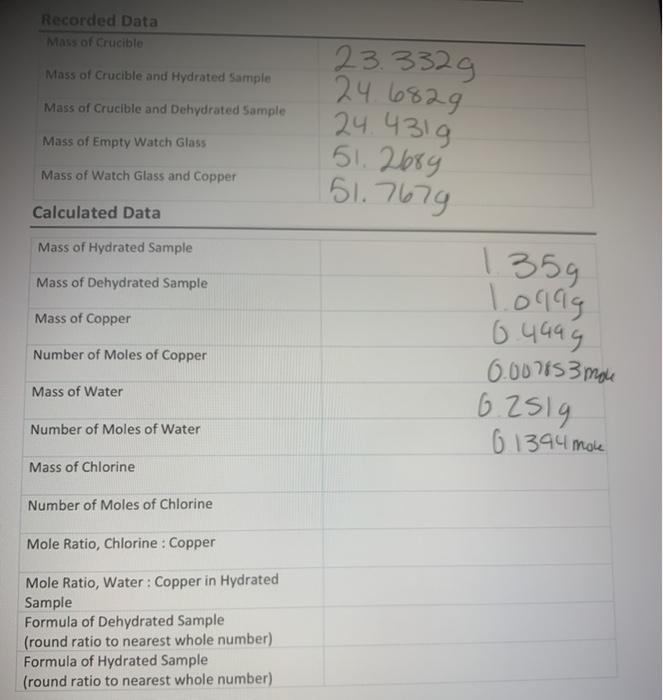 Recorded Data
Mass of Crucible 23.332g
Mass of Crucible and Hydrated Sample 24.682g
Mass of Crucible and Dehydrated Sample 24.431g
Mass of Empty Watch Glass 51.268g
Mass of Watch Glass and Copper 51.767g
Calculated Data
Mass of Hydrated Sample 1.35g
Mass of Dehydrated Sample 1.099g
Mass of Copper 0.499g
Number of Moles of Copper 0.007853 mole
Mass of Water 0.251g
Number of Moles of Water 0.1394 mole
Mass of Chlorine
Number of Moles of Chlorine
Mole Ratio, Chlorine : Copper
Mole Ratio, Water : Copper in Hydrated
Sample
Formula of Dehydrated Sample
(round ratio to nearest whole number)
Formula of Hydrated Sample
(round ratio to nearest whole number)